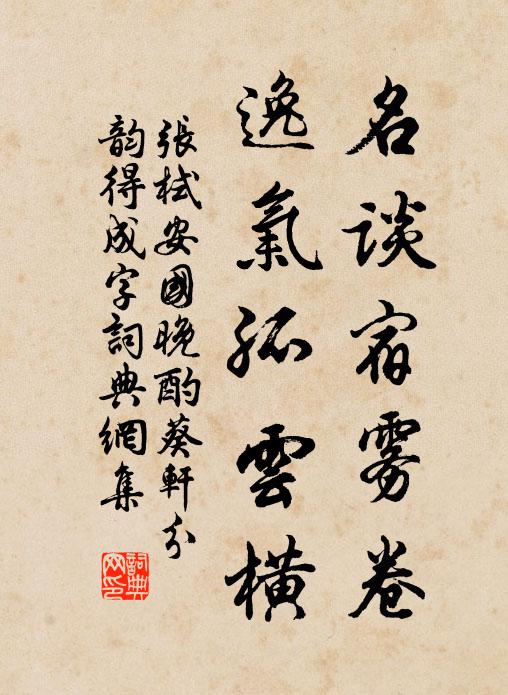 名談宿雾卷
逸氣孤雲橫
張栻安國晚酌葵軒分
韵得成字詞典網集
詞典网印